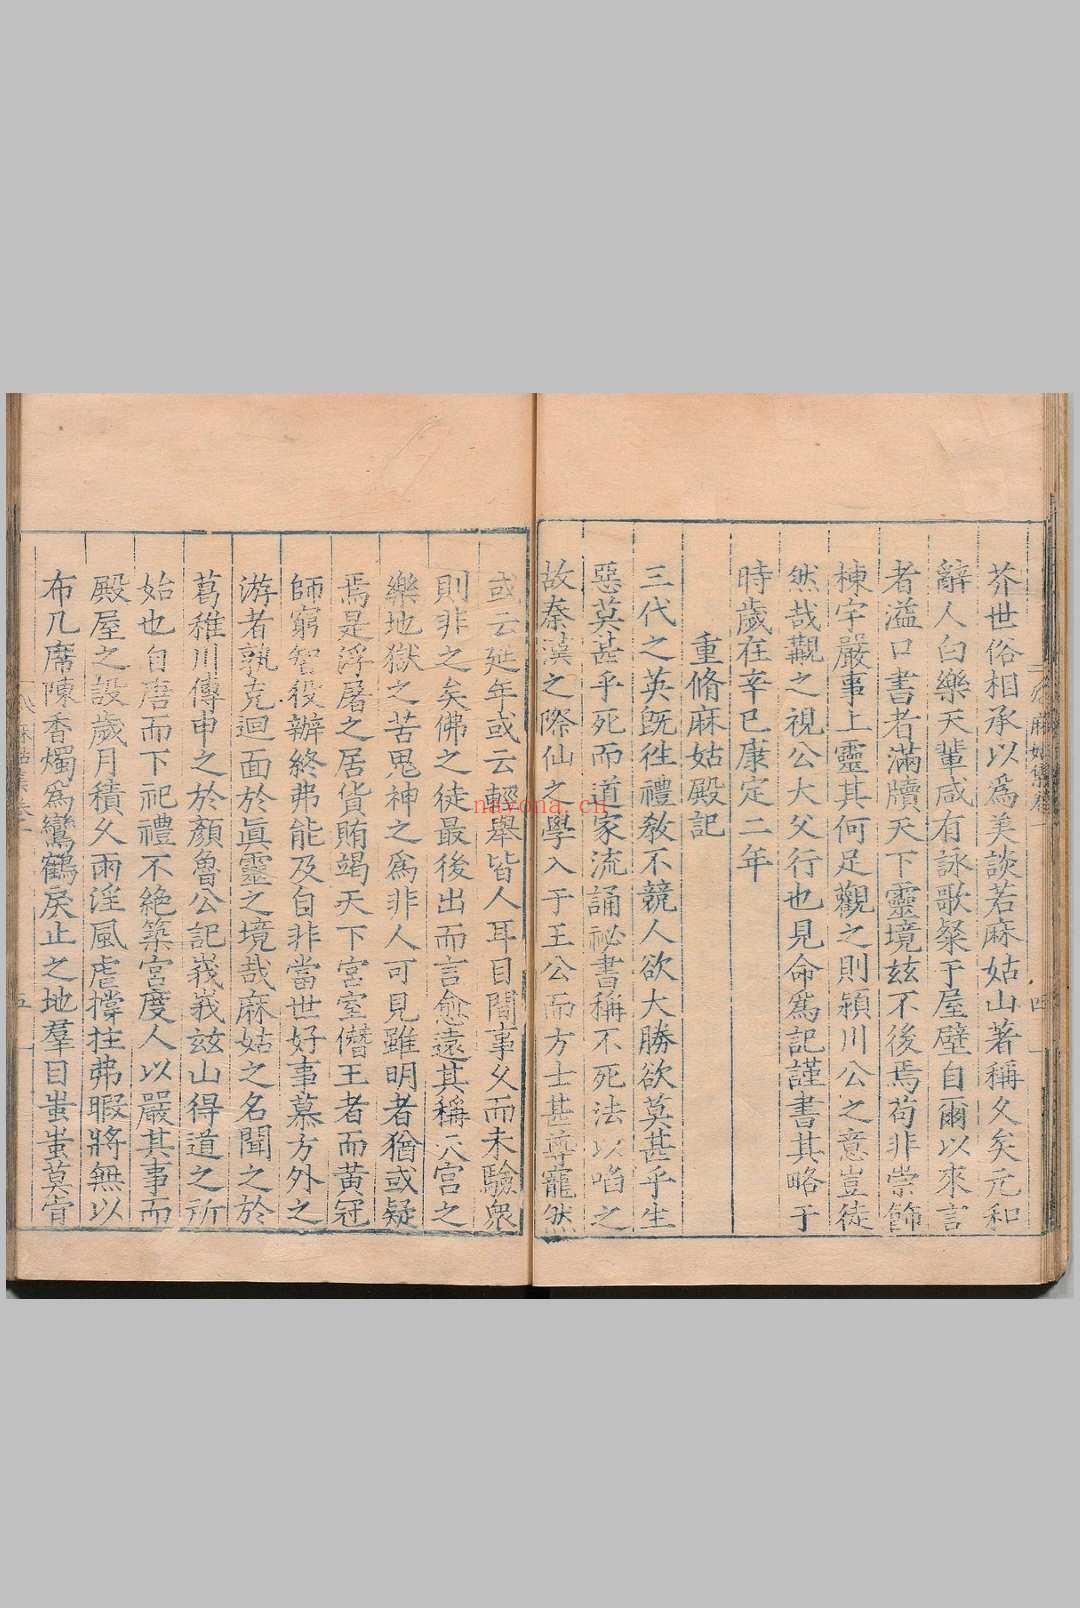 芥世俗相承以爲美談若麻姑山著稱久矣元和
辭人白樂天輩咸有詠歌粲于屋壁自爾以來言
者溢口書者滿牘天下靈境兹不後焉苟非崇飾
棟宇嚴事上靈其何足觀之則潁川公之意豈徒
然哉觀之視公大父行也見命爲記謹書其略于
時歲在辛巳康定二年
重脩麻姑殿記
三代之英旣徃禮敎不競人欲大勝欲莫甚乎生
惡莫甚乎死而道家流誦祕書稱不死法以啗之
故秦漢之際仙之學入于王公而方士甚尊寵然
或云延年或云輕舉皆人耳目間事久而未驗衆
則非之矣佛之徒最後出而言愈遠其稱天宮之
樂地獄之苦鬼神之爲非人可見雖明者猶或疑
焉是浮屠之居貨賄竭天下宮室僭王者而黃冠
師窮智役辦終弗能及自非當世好事慕方外之
游者孰克迴面於眞靈之境哉麻姑之名聞之於
葛稚川傳申之於顏魯公記峩峩兹山得道之所
始也自唐而下祀禮不絶築宮度人以嚴其事而
殿屋之設歲月積久雨淫風虐撐拄弗暇將無以
布几席陳香燭爲鸞鶴戾止之地羣目蚩蚩莫肯
麻姑集卷一
四
麻姑集卷一
五
nayona.cn